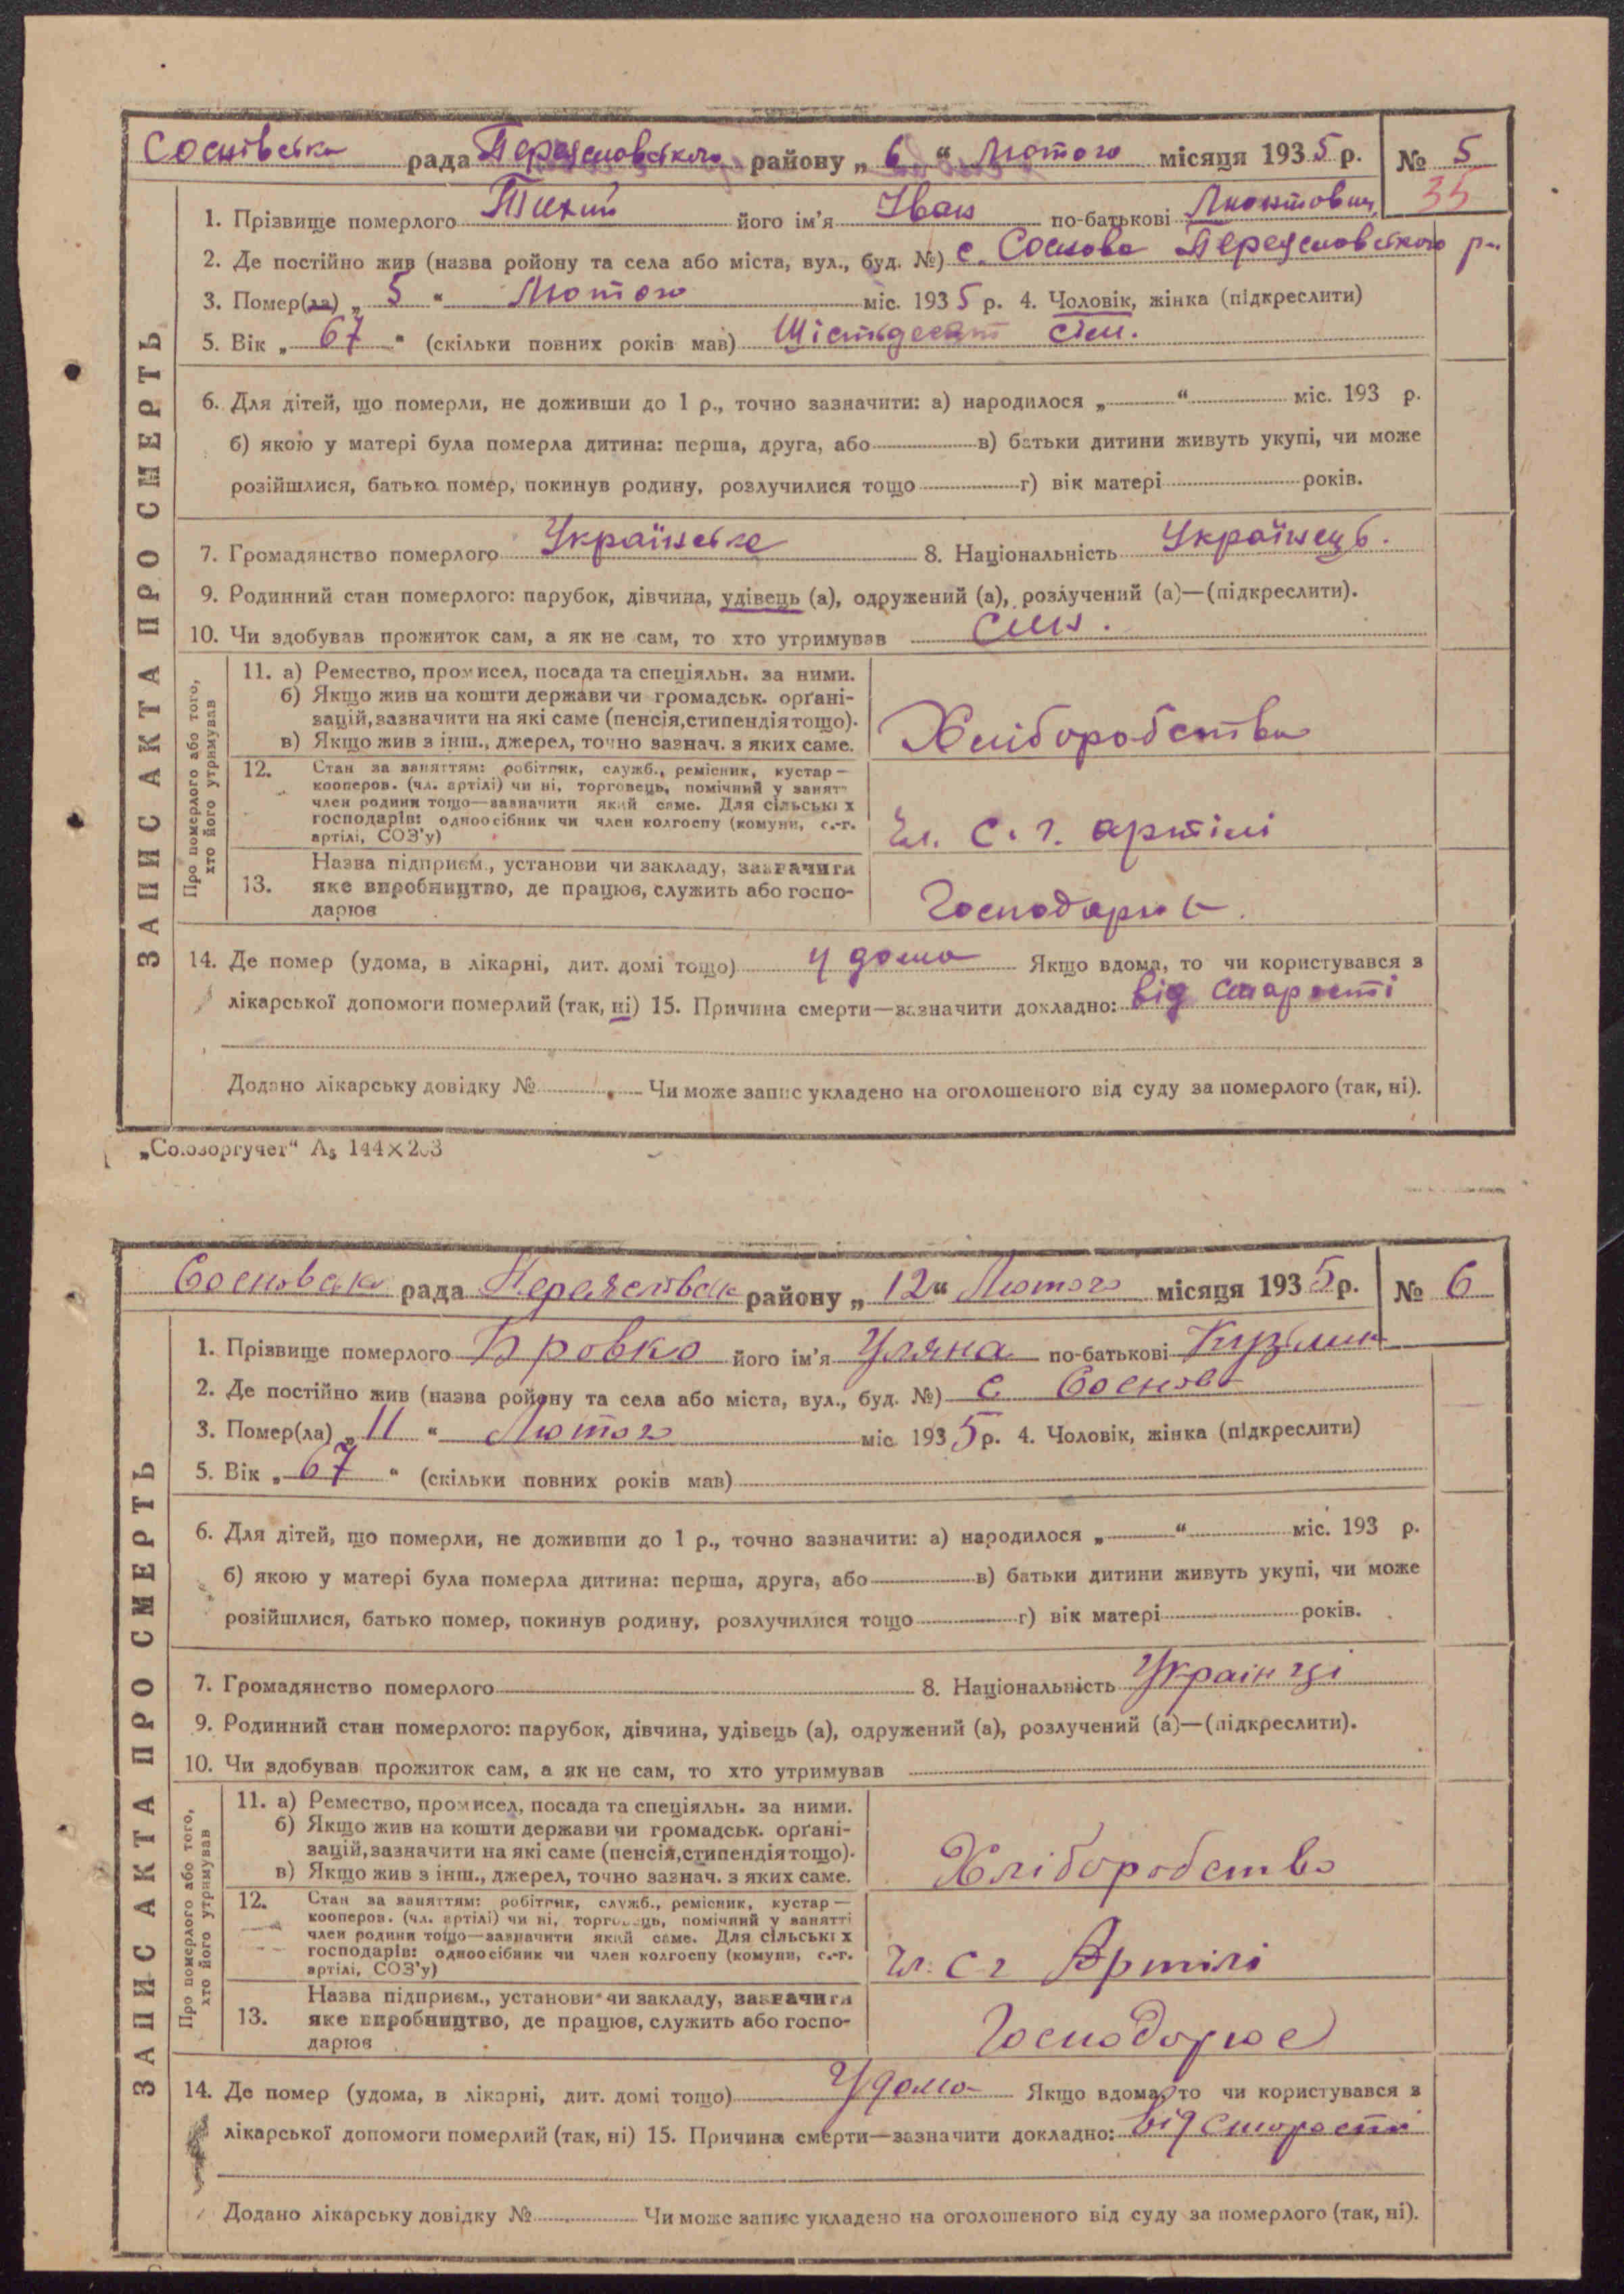 Соснівська рада Переяславського району „ 6 “ Лютого місяця 1935 р. № 5
35
1. Прізвище померлого Тихий його ім'я Іван по-батькові
2. Де постійно жив (назва ройону та села або міста, вул., буд. №) с. Соснова Переяславського р-н.
3. Помер(ла) „ 5 “ Лютого міс. 1935 р. 4. Чоловік, жінка (підкреслити)
5. Вік „ 67 “ (скільки повних років мав) Шістьдесят сім.
6. Для дітей, що померли, не доживши до 1 р., точно зазначити: а) народилося „ “ міс. 193 р.
б) якою у матері була померла дитина: перша, друга, або в) батьки дитини живуть укупі, чи може
розійшлися, батько помер, покинув родину, розлучилися тощо г) вік матері років.
7. Громадянство померлого Українське 8. Національність Українець.
9. Родинний стан померлого: парубок, дівчина, удівець (а), одружений (а), розлучений (а)—(підкреслити).
10. Чи здобував прожиток сам, а як не сам, то хто утримував
ЗАПИС АКТА ПРО СМЕРТЬ
Про померлого або того,
хто його утримував
11. а) Ремество, промисел, посада та спеціяльн. за ними.
б) Якщо жив на кошти держави чи громадськ. орґані-
зацій, зазначити на які саме (пенсія, стипендія тощо).
в) Якщо жив з інш., джерел, точно зазнач. з яких саме.
Хліборобство
12. Стан за заняттям: робітник, служб., ремісник, кустар —
кооперов. (чл. артілі) чи ні, торговець, помічний у занятт
член родини тощо—зазначити який саме. Для сільських
господарів: одноосібник чи член колгоспу (комуни, с.-г.
артілі, СОЗ'у)
Чл. с. г. артілі
13. Назва підприєм., установи чи закладу, зазначити
яке виробництво, де працює, служить або госпо-
дарює
Господарює
14. Де помер (удома, в лікарні, дит. домі тощо) у дома Якщо вдома, то чи користувався з
лікарської допомоги померлий (так, ні) 15. Причина смерти—зазначити докладно: від старості
Додано лікарську довідку № Чи може запис укладено на оголошеного від суду за померлого (так, ні).
„Союзоргучет“ А5 144×203
рада району „ 12 “ Лютого місяця 1935 р. № 6
1. Прізвище померлого Бровко його ім'я Уляна по-батькові
2. Де постійно жив (назва ройону та села або міста, вул., буд. №) с Соснова
3. Помер(ла) „ 11 “ Лютого міс 1935 р. 4. Чоловік, жінка (підкреслити)
5. Вік „ 67 “ (скільки повних років мав)
6. Для дітей, що померли, не доживши до 1 р., точно зазначити: а) народилося „ “ міс. 193 р.
б) якою у матері була померла дитина: перша, друга, або в) батьки дитини живуть укупі, чи може
розійшлися, батько помер, покинув родину, розлучилися тощо г) вік матері років.
7. Громадянство померлого 8. Національність Українці
9. Родинний стан померлого: парубок, дівчина, удівець (а), одружений (а), розлучений (а)—(підкреслити).
10. Чи здобував прожиток сам, а як не сам, то хто утримував
ЗАПИС АКТА ПРО СМЕРТЬ
Про померлого або того,
хто його утримував
11. а) Ремество, промисел, посада та спеціяльн. за ними.
б) Якщо жив на кошти держави чи громадськ. орґані-
зацій, зазначити на які саме (пенсія, стипендія тощо).
в) Якщо жив з інш., джерел, точно зазнач. з яких саме.
Хліборобство
12. Стан за заняттям: робітник, служб., ремісник, кустар —
кооперов. (чл. артілі) чи ні, торговець, помічний у занятті
член родини тощо—зазначити який саме. Для сільських
господарів: одноосібник чи член колгоспу (комуни, с.-г.
артілі, СОЗ'у)
Чл. с г Артілі
13. Назва підприєм., установи чи закладу, зазначити
яке виробництво, де працює, служить або госпо-
дарює
Господорює
14. Де помер (удома, в лікарні, дит. домі тощо) Удома Якщо вдома, то чи користувався з
лікарської допомоги померлий (так, ні) 15. Причина смерти—зазначити докладно: від старості
Додано лікарську довідку № Чи може запис укладено на оголошеного від суду за померлого (так, ні).